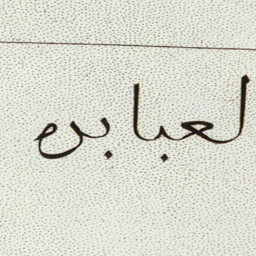 لعبابره